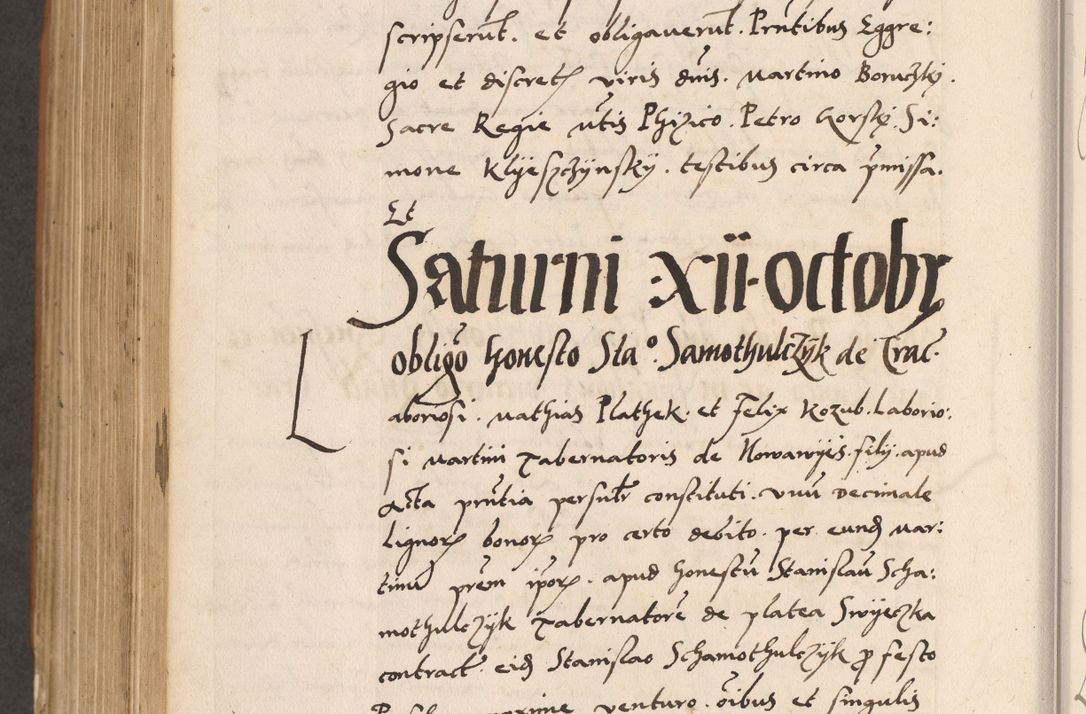 scripserūt. et obligaverūt. Prntibus Eggre:
gio et discretꝫ viris dn̄is. Martino Boruczky.
Sacre Regie Mtis Phizico. Petro Gorsky. Si:
mone Klyeszczynsky. testibus circa p̄missa.
Et
Saturni xii octobꝝ
obligō honesto Sta°. Samothulczyk de Crac.
Laboriosi. Mathias Plathek. et Felix Kozub. Laborio:
si Martini Tabernatoris de Nowawyes. filij. apud
Acta prn̄tia persnlr̄ constituti. Vnū decimale
lignoꝝ bonoꝝ pro certo debito. per eundē Mar:
tinū prēm ipoꝝ. apud honestū Stanislaū Scha:
mothulczyk Tabernatorē de platea Swyeczka
contract. eidē Stanislao Schamothulczyk ꝓ festo
venturo. oībus et singulis